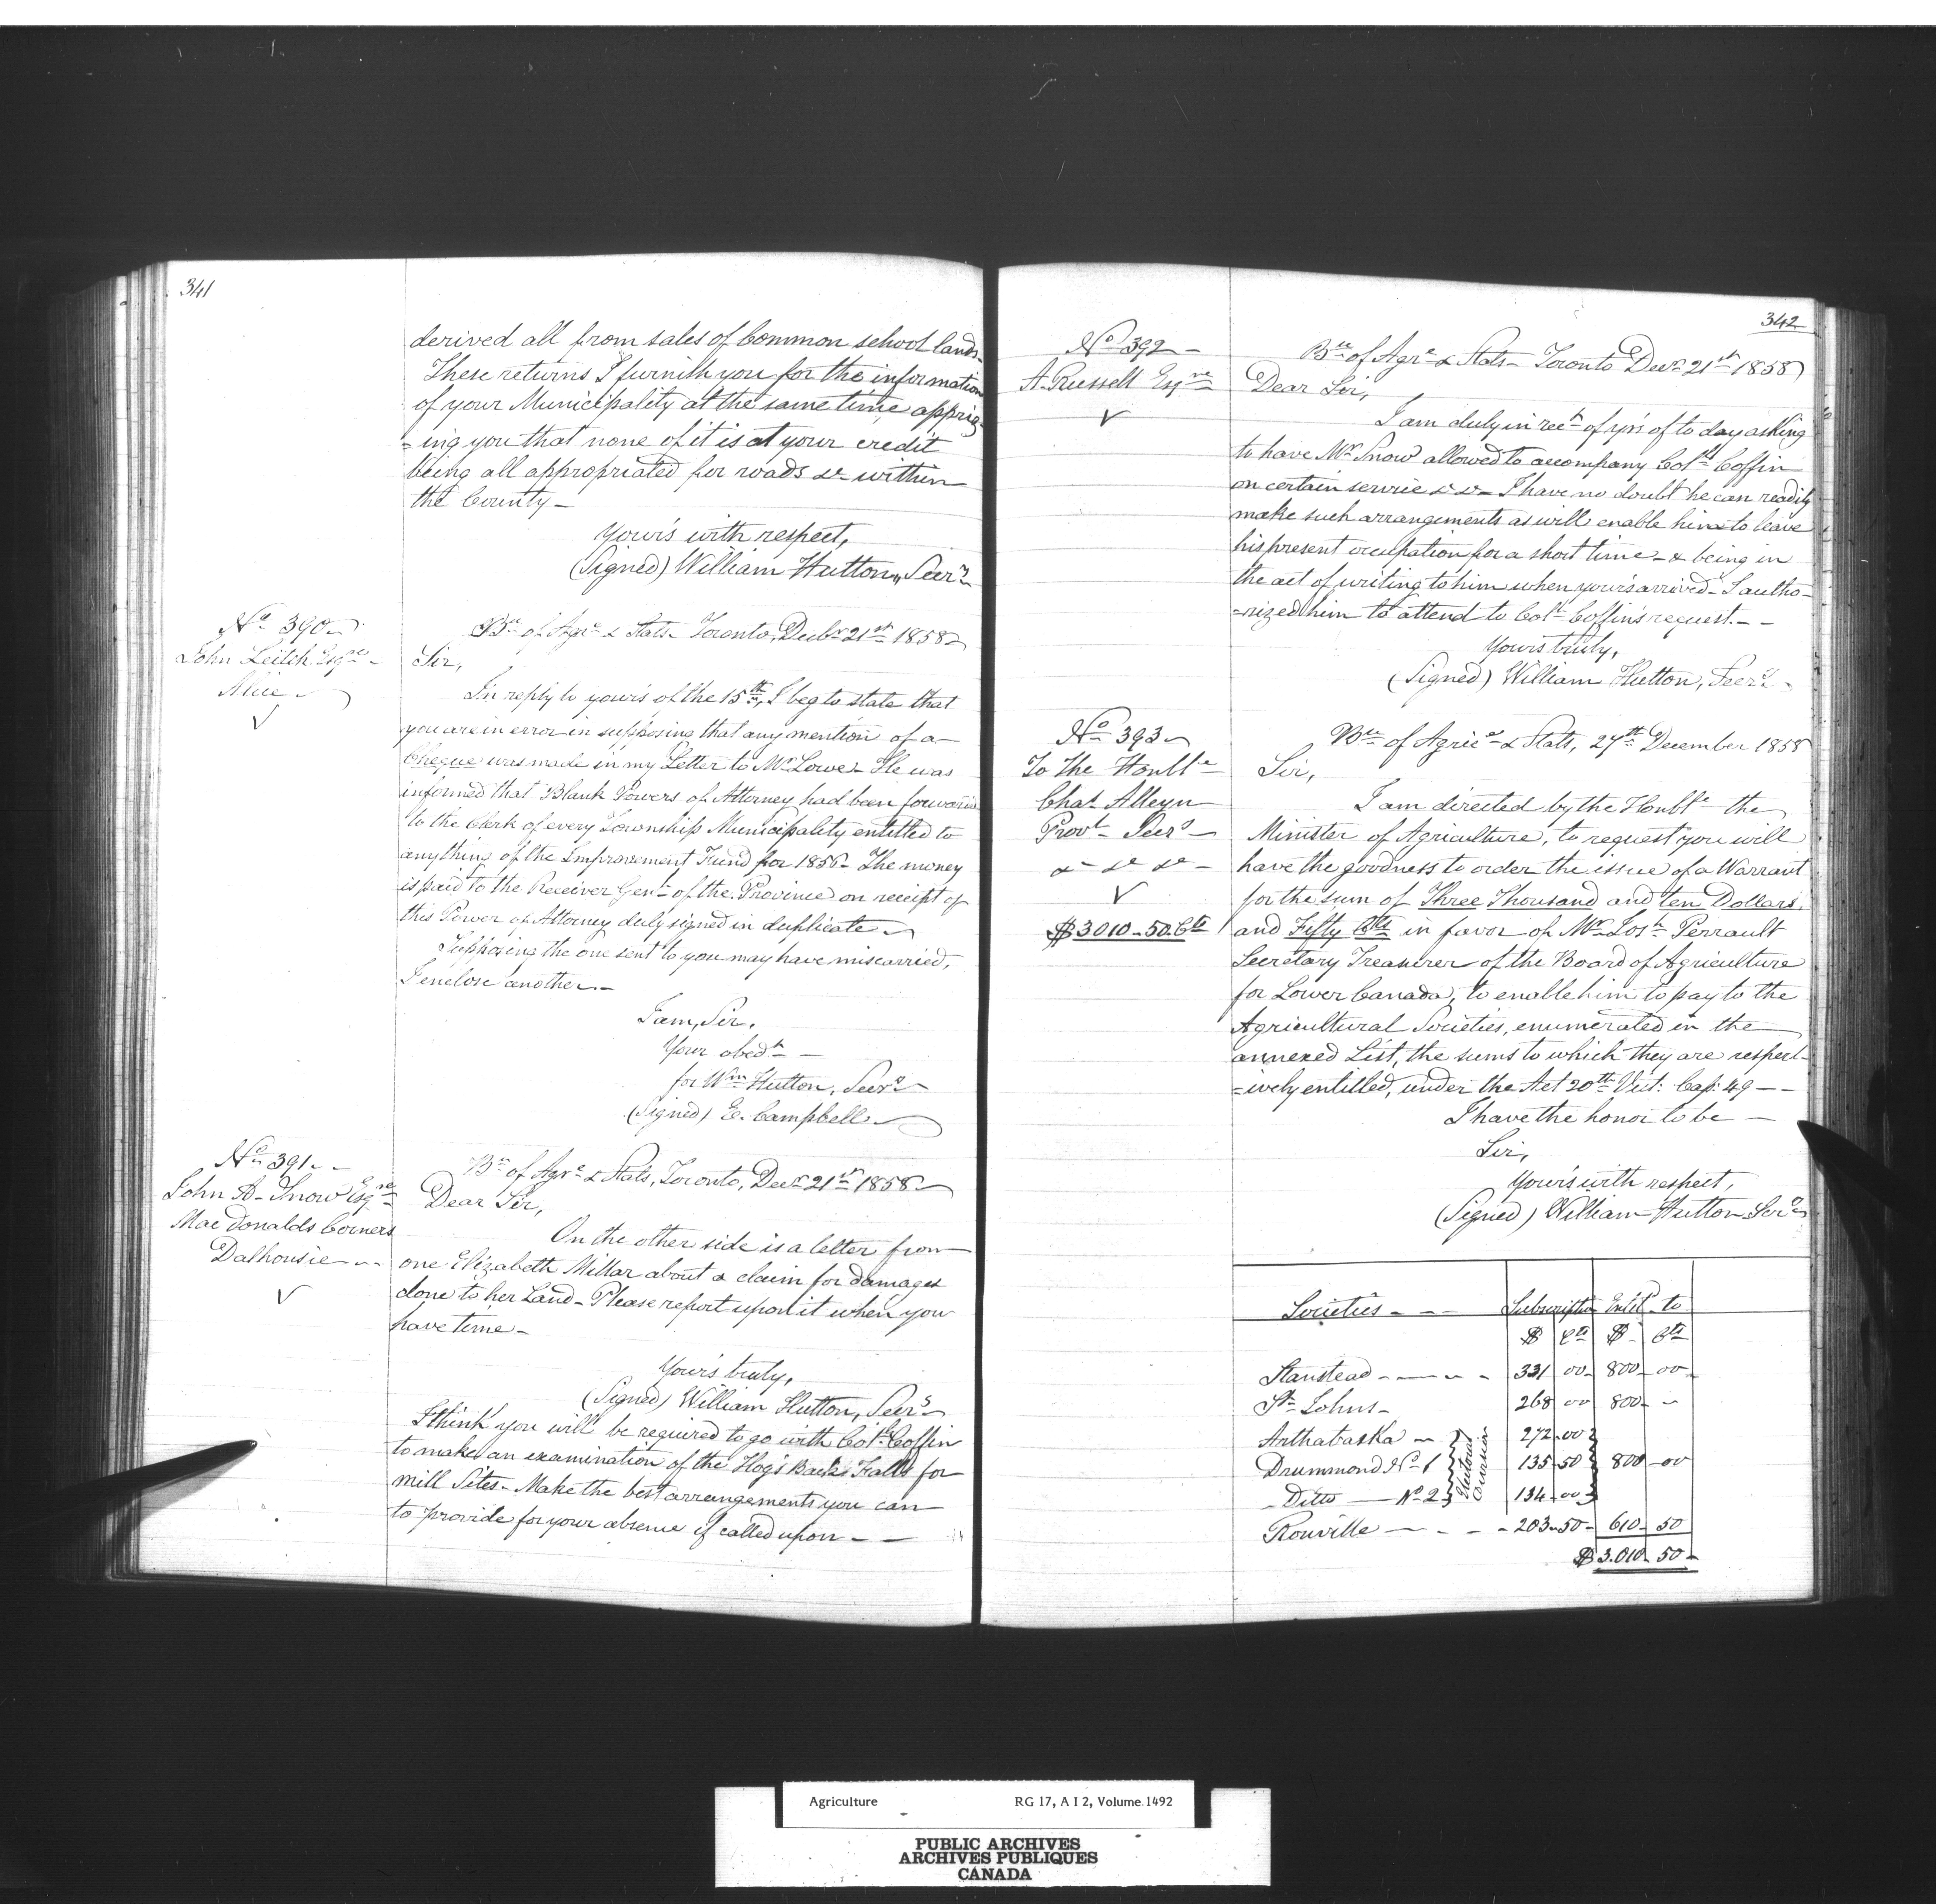 341
derived all from sales of Common school lands.
These returns I furnish you for the information
of your Municipality at the same time appriz-
=ing you that none of it is at your credit
being all appropriated for roads &c within
the County –
Your's with respect,
(Signed) William Hutton, Secry
No 390
John Leitch Esqre
Alice
Bu of Agre & Stats Toronto, Decbr 21st 1858
Sir,
In reply to your's of the 15th, I beg to state that
you are in error in supposing that any mention of a
Cheque was made in my Letter to Mr Lowe – He was
informed that Blank Powers of Attorney had been forwarded
to the Clerk of every Township Municipality entitled to
anything of the Improvement Fund for 1856 – The money
is paid to the Receiver Genl of the Province on receipt of
this Power of Attorney duly signed in duplicate
Supposing the one sent to you may have miscarried,
I enclose another. –
I am, Sir,
Your obedt –
for Wm Hutton, Secry
(Signed) E. Campbell
No 391
John A. Snow Esqre
MacDonalds Corners
Dalhousie
Bu of Agre & Stats, Toronto, Decr 21st 1858
Dear Sir,
On the other side is a letter from
one Elizabeth Millar about a claim for damages
done to her Land – Please report upon it when you
have time –
Your's truly,
(Signed) William Hutton, Secry
I think you will be required to go with Coll Coffin
to make an examination of the Hog's Back Falls for
mill Sites – Make the best arrangements you can
to provide for your absence if called upon – –
342
No 392 –
A. Russell Esqre
Bu of Agre & Stats – Toronto Decr 21st 1858
Dear Sir,
I am duly in rect of yrs of to day asking
to have Mr Snow allowed to accompany Coll Coffin
on certain service &c &c – I have no doubt he can readily
make such arrangements as will enable him to leave
his present occupation for a short time – & being in
the act of writing to him when your's arrived – I autho-
=rized him to attend to Coll Coffin's request. – –
Your's truly,
(Signed) William Hutton, Secry
No 393
To The Honble
Chas Alleyn
Provl Secry
&c &c &c
$3010-50.Cts
Bu of Agrice & Stats, 27th December 1858
Sir,
I am directed by the Honble the
Minister of Agriculture, to request you will
have the goodness to order the issue of a Warrant
for the sum of Three Thousand and ten Dollars,
and Fifty Cts in favor of Mr Josh Perrault
Secretary Treasurer of the Board of Agriculture
for Lower Canada, to enable him to pay to the
Agricultural Societies, enumerated in the
annexed List, the sums to which they are respect-
=ively entitled, under the Act 20th Vict: Cap: 49 – –
I have the honor to be –
Sir,
Your's with respect,
(Signed) William Hutton Secry
Societies – – Subscriptn Entitd to
$ Cts $ Cts
Stanstead – – – 331 00 800 00
St Johns – 268 00 800 –
Arthabaska – 272.00
Drummond No 1 135.50 800 – 00
Ditto – No 2 134.00
Electoral
Division
Rouville – – – 203.50 – 610 – 50
$3.010 – 50
Agriculture RG 17, A I 2, Volume 1492
PUBLIC ARCHIVES
ARCHIVES PUBLIQUES
CANADA